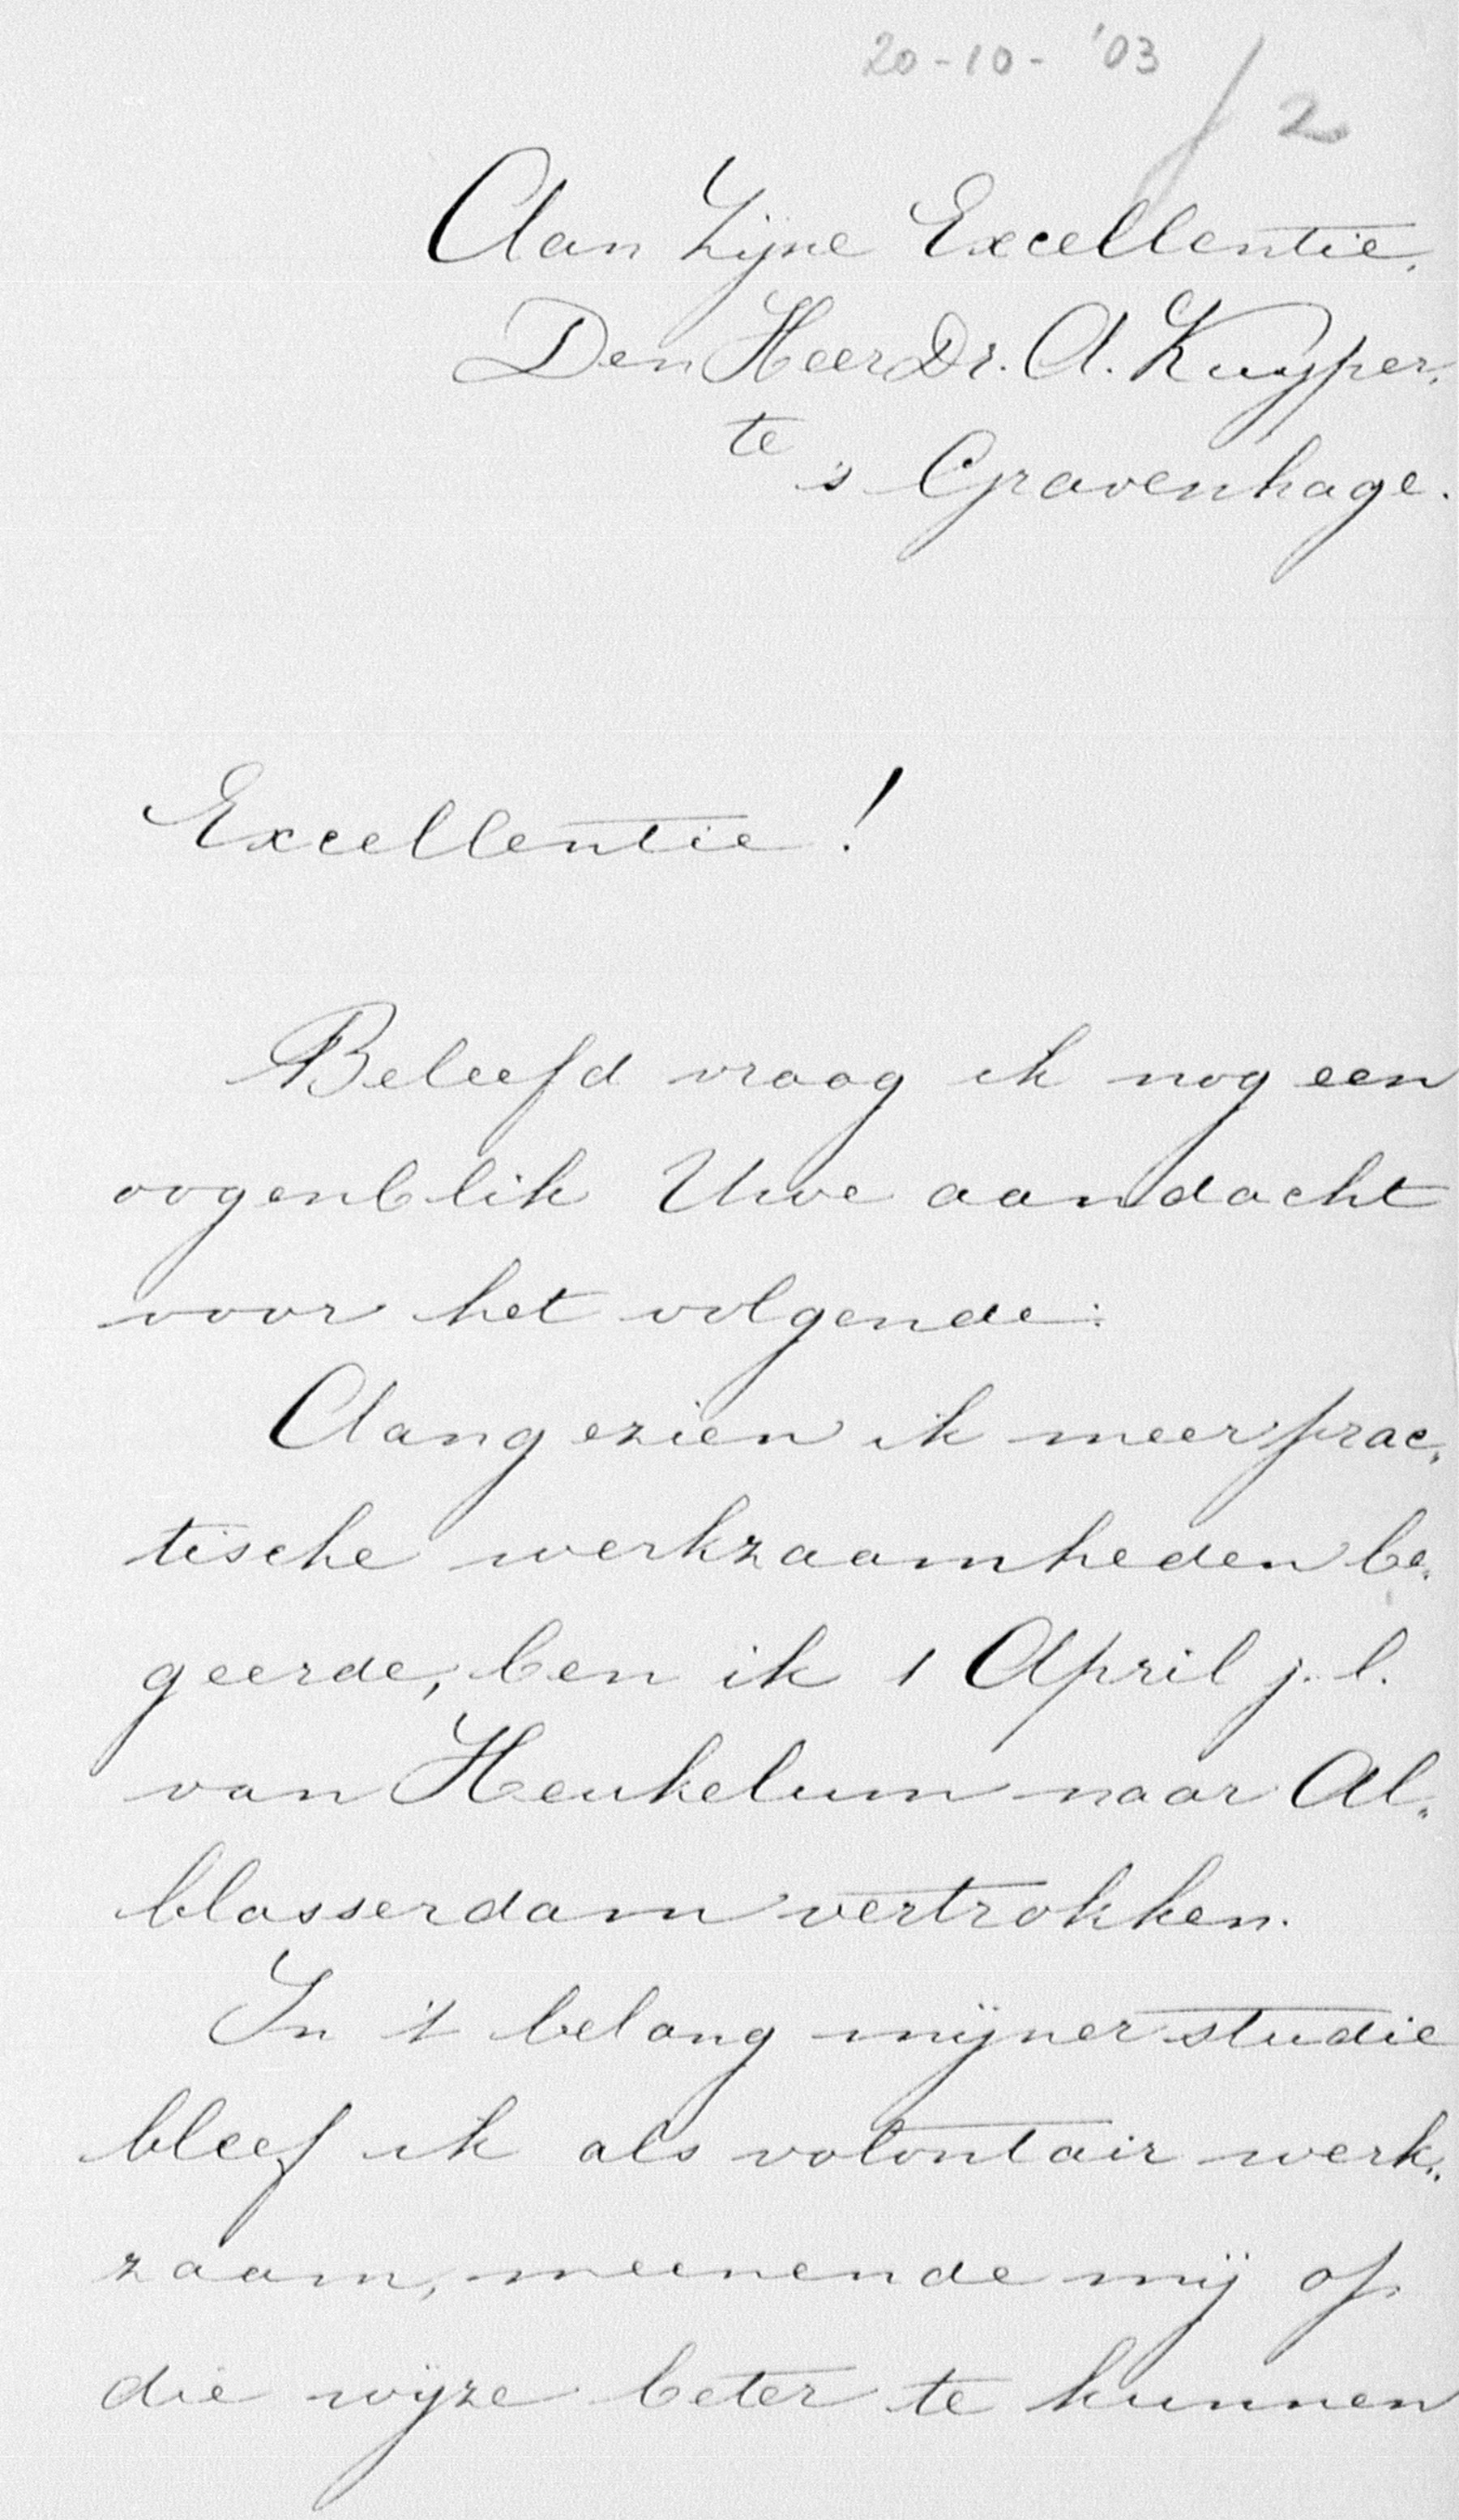 20-10-'03
2
Aan Zijne Excellentie.
Den Heer Dr. A. Kuyper.
te
's Gravenhage.
Excellentie!
Beleefd vraag ik nog een
oogenblik Uwe aandacht
voor het volgende:
Aangezien ik meer prac„
tische werkzaamheden be„
geerde, ben ik 1 April j.l.
van Heukelum naar Al„
blasserdam vertrokken.
In 't belang mijner studie
bleef ik als volontair werk„
zaam, meenende mij op
die wijze beter te kunnen